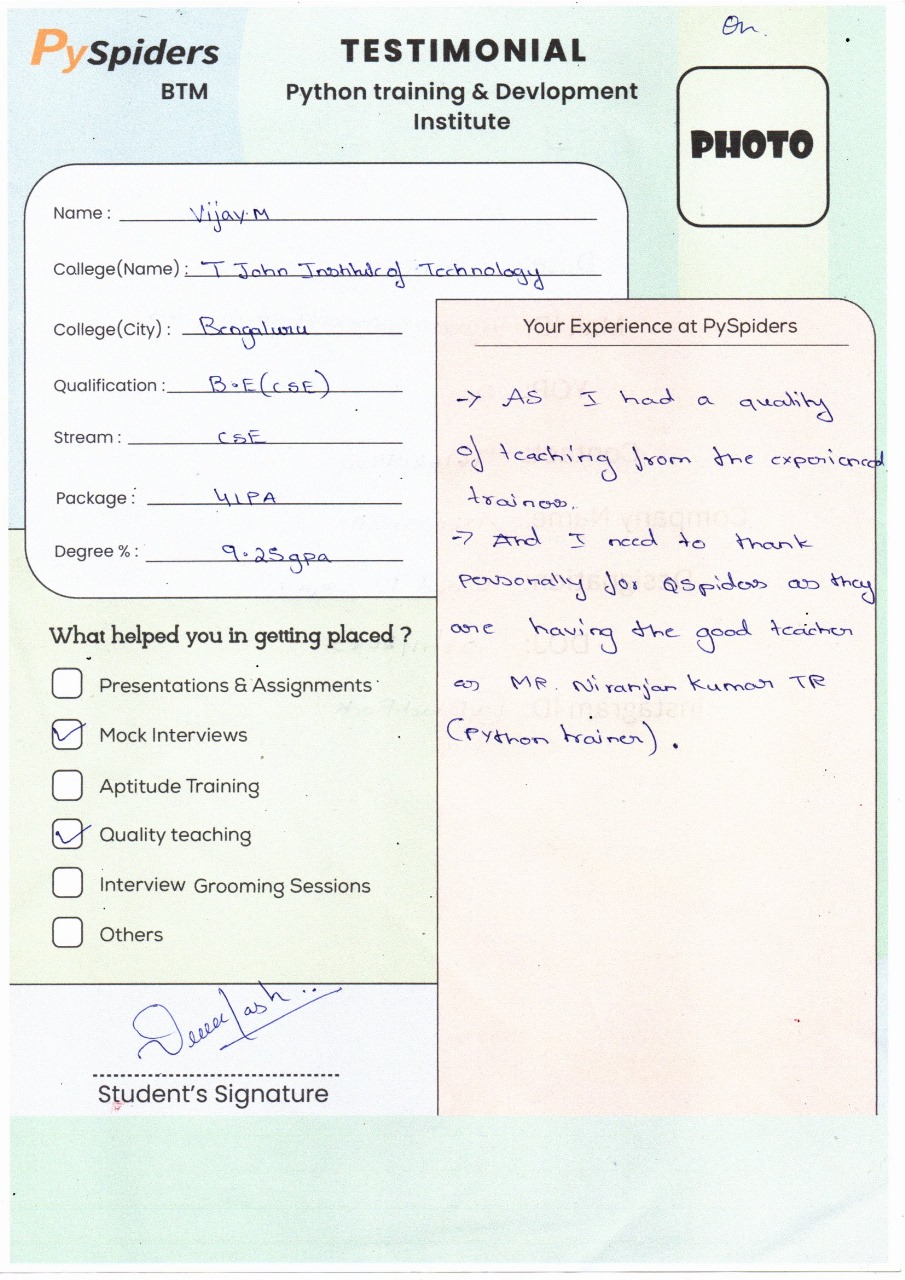 PySpiders
BTM
TESTIMONIAL
Python training & Devlopment
Institute
On.
PHOTO
Name : Vijay.M
College(Name) : T John Institute of Technology
College(City) : Bengaluru
Qualification : B.E(CSE)
Stream : CSE
Package : 4LPA
Degree % : 9.25gpa
What helped you in getting placed ?
Presentations & Assignments
Mock Interviews
Aptitude Training
Quality teaching
Interview Grooming Sessions
Others
Student's Signature
Your Experience at PySpiders
-> AS I had a quality
of teaching from the experienced
trainers.
-> And I need to thank
personally for QSpiders as they
are having the good teacher
as MR. Niranjan Kumar TR
(Python trainer).